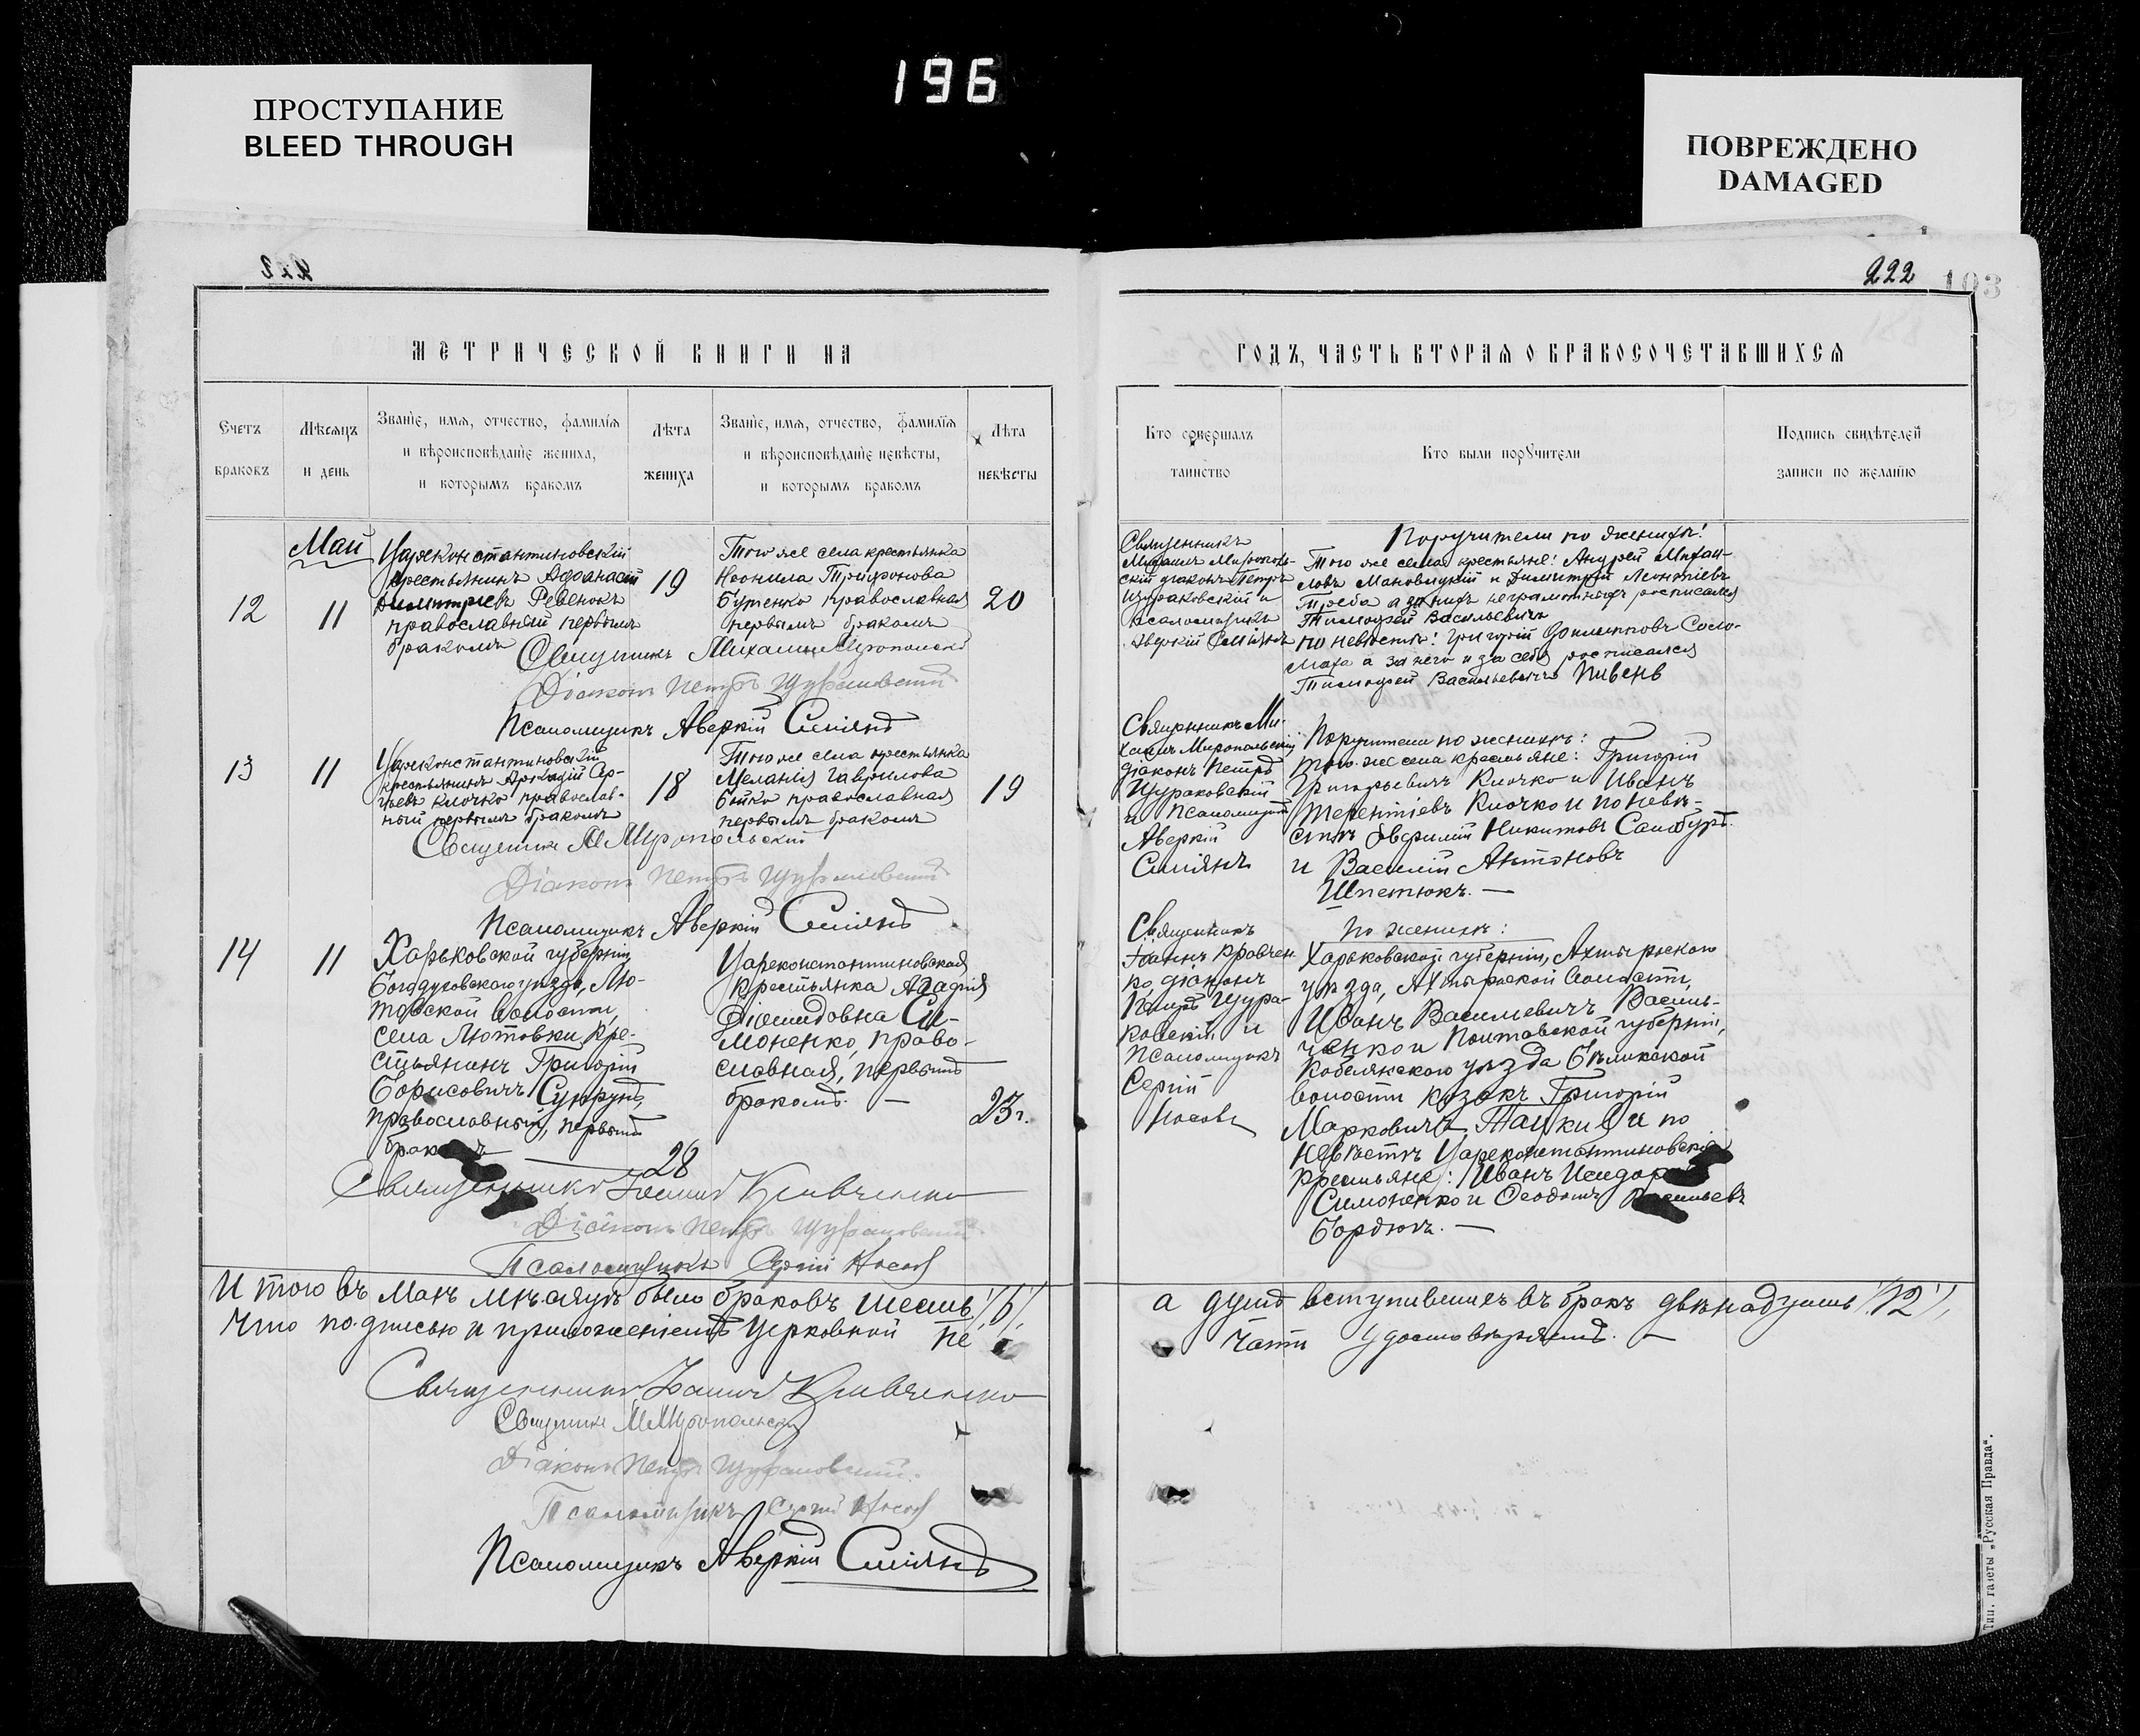 196
ПРОСТУПАНИЕ
BLEED THROUGH
ПОВРЕЖДЕНО
DAMAGED
222
103
МЕТРИЧЕСКОЙ КНИГИ НА
Счетъ
браковъ
Мѣсяцъ
и день
Званіе, имя, отчество, фамилія
и вѣроисповѣданіе жениха,
и которымъ бракомъ
Лѣта
жениха
Званіе, имя, отчество, фамилія
и вѣроисповѣданіе невѣсты,
и которымъ бракомъ
Лѣта
невѣсты
Май
12
11
Цареконстантиновскій
крестьянинъ Афанасій
Димитріевъ Ребенокъ
православный первымъ
бракомъ
19
Того же села крестьянка
Неонила Трифонова
Бутенко православная
первымъ бракомъ
20
Священникъ Михаилъ Миропольскій
Діаконъ Петръ
Псаломщикъ Аверкій Сміянъ
13
11
Цареконстантиновскій
крестьянинъ Аркадій Сер-
гѣевъ Клочко православ-
ный первымъ бракомъ
18
Того же села крестьянка
Меланія Гаврилова
Бойко православная
первымъ бракомъ
19
Священникъ М Миропольскій
Діаконъ Петръ
Псаломщикъ Аверкій Сміянъ
14
11
Харьковской губерніи
Богодуховского уѣзда, Лю-
товской волости,
села Лютовки, кре-
стьянинъ Григорій
Борисовичъ Супрунъ,
православный, первымъ
бракомъ
28
Цареконстантиновская
крестьянка Агафія
Діомидовна Си-
моненко, право-
славная, первымъ
бракомъ. —
23 г.
Священникъ Іоаннъ Кравченко
Діаконъ Петръ
Псаломщикъ Сергій Носовъ
Итого въ Маѣ мѣсяцѣ было браковъ шесть /6/,
Что подписью и приложеніемъ церковной пе
Священникъ Іоаннъ Кравченко
Священникъ М Миропольскій
Діаконъ Петръ
Псаломщикъ Сергій Носовъ
Псаломщикъ Аверкій Сміянъ
ГОДЪ, ЧАСТЬ ВТОРАЯ О БРАКОСОЧЕТАВШИХСЯ
Кто совершалъ
таинство
Кто были поручители
Подпись свидѣтелей
записи по желанію
Священникъ
Михаилъ Мирополь-
скій діаконъ Петръ
Щураковскій и
псаломщикъ
Аверкій Сміянъ
Поручители по женихѣ!
Того же села крестьяне! Андрей Михаи-
ловъ Мановицкій и Димитрій Леонтіевъ
Треба а за нихъ неграмотныхъ росписался
Тимофей Васильевичъ
по невѣстѣ! Григорій Соло-
маха а за него и за себя росписался
Тимофей Васильевичъ Пивень
Священникъ Ми-
хаилъ Миропольскій
діаконъ Петръ
Щураковскій
и Псаломщикъ
Аверкій
Сміянъ
Поручители по женихѣ:
того-же села крестьяне: Григорій
Григорьевичъ Клочко и Иванъ
Терентіевъ Клочко и по невѣ-
стѣ Никитовъ
и Василій Антоновъ
Шпетюкъ. —
Священникъ
Іоаннъ Кравчен
ко, діаконъ
Петръ Щура-
ковскій и
псаломщикъ
Сергій
Носовъ
По женихѣ:
Харьковской губерніи, Ахтырского
уѣзда, Ахтырской волости,
Иванъ Василіевичъ Василь-
ченко и Полтавской губерніи,
Кобелякского уѣзда Бѣликской
волости козакъ Григорій
Марковичъ и по
невѣстѣ Цареконстантиновскіе
крестьяне: Иванъ Исидоровъ
Симоненко и Феодотъ Васильевъ
Бордюгъ. —
а душъ вступившихъ въ бракъ двѣнадцать /12/,
чати удостовѣряемъ. —
Тип. газеты „Русская Правда“.